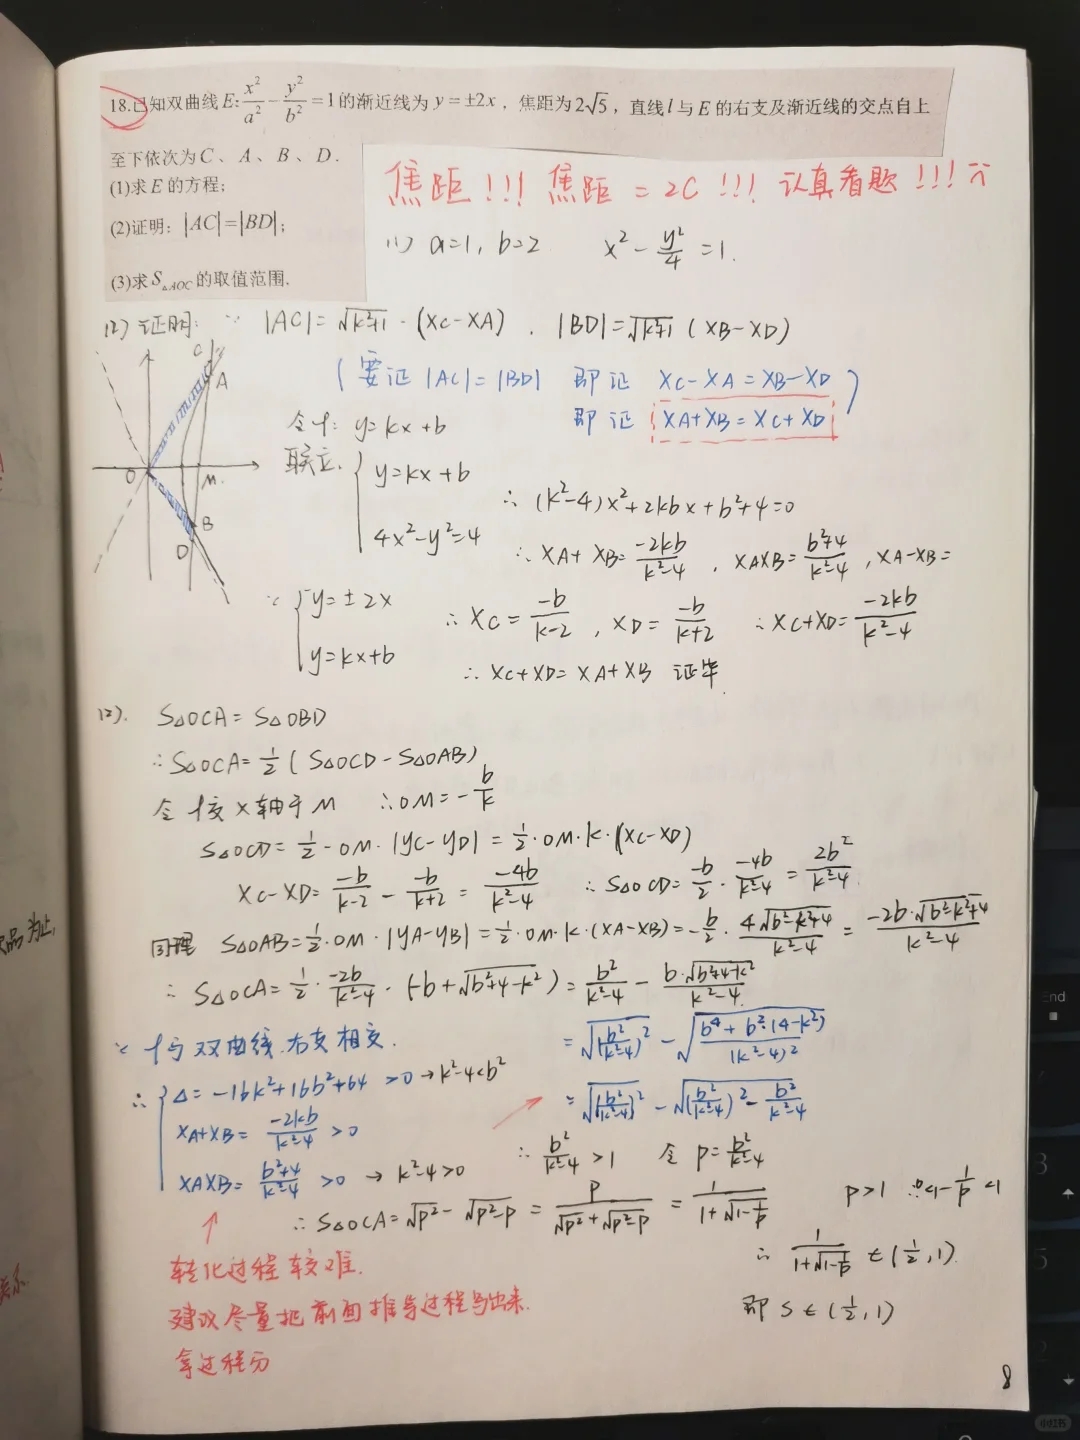 18.已知双曲线E:x²/a²-y²/b²=1的渐近线为y=±2x，焦距为2√5，直线l与E的右支及渐近线的交点自上
至下依次为C、A、B、D.
(1)求E的方程;
(2)证明: |AC|=|BD|;
(3)求S△AOC的取值范围.
焦距!!! 焦距=2C!!! 认真看题!!!
(1) a=1, b=2 x²-y²/4=1.
(2) 证明: ∵ |AC|=√k²+1·(XC-XA), |BD|=√k²+1(XB-XD)
(要证|AC|=|BD| 即证 XC-XA=XB-XD
即证 XA+XB=XC+XD)
令l: y=kx+b
联立. {y=kx+b
4x²-y²=4
∴(k²-4)x²+2kbx+b²+4=0
∴XA+XB=-2kb/k²-4, XAXB=b²+4/k²-4, XA-XB=
∵{y=±2x
y=kx+b
∴XC=-b/k-2, XD=-b/k+2 ∴XC+XD=-2kb/k²-4
∴XC+XD=XA+XB 证毕.
C
A
O
M
B
D
12). S△OCA=S△OBD
∴S△OCA=1/2(S△OCD-S△OAB)
令l交x轴于M ∴OM=-b/k
S△OCD=1/2·OM·|YC-YD|=1/2·OM·k·(XC-XD)
XC-XD=-b/k-2 - -b/k+2=-4b/k²-4 ∴S△OCD=-b/2·-4b/k²-4=2b²/k²-4
同理 S△OAB=1/2·OM·|YA-YB|=1/2·OM·k·(XA-XB)=-b/2·4√b²-k²+4/k²-4=-2b·√b²-k²+4/k²-4
∴S△OCA=1/2·-2b/k²-4·(-b+√b²+4-k²)=b²/k²-4 - b·√b²+4-k²/k²-4
∵l与双曲线右支相交.
=√(b²/k²-4)²-√b⁴+b²·(4-k²)/(k²-4)²
∴{△=-16k²+16b²+64>0→k²-4<b²
XA+XB=-2kb/k²-4>0
XAXB=b²+4/k²-4>0→k²-4>0
=√(b²/k²-4)²-√(b²/k²-4)²-b²/k²-4
∴b²/k²-4>1 令p=b²/k²-4
∴S△OCA=√p²-√p²-p=p/√p²+√p²-p=1/1+√1-1/p p>1 ∴0<1-1/p<1
∴1/1+√1-1/p∈(1/2,1).
即S∈(1/2,1)
转化过程较难.
建议尽量把前面推导过程写出来.
拿过程分
8
End
3
5
小红书